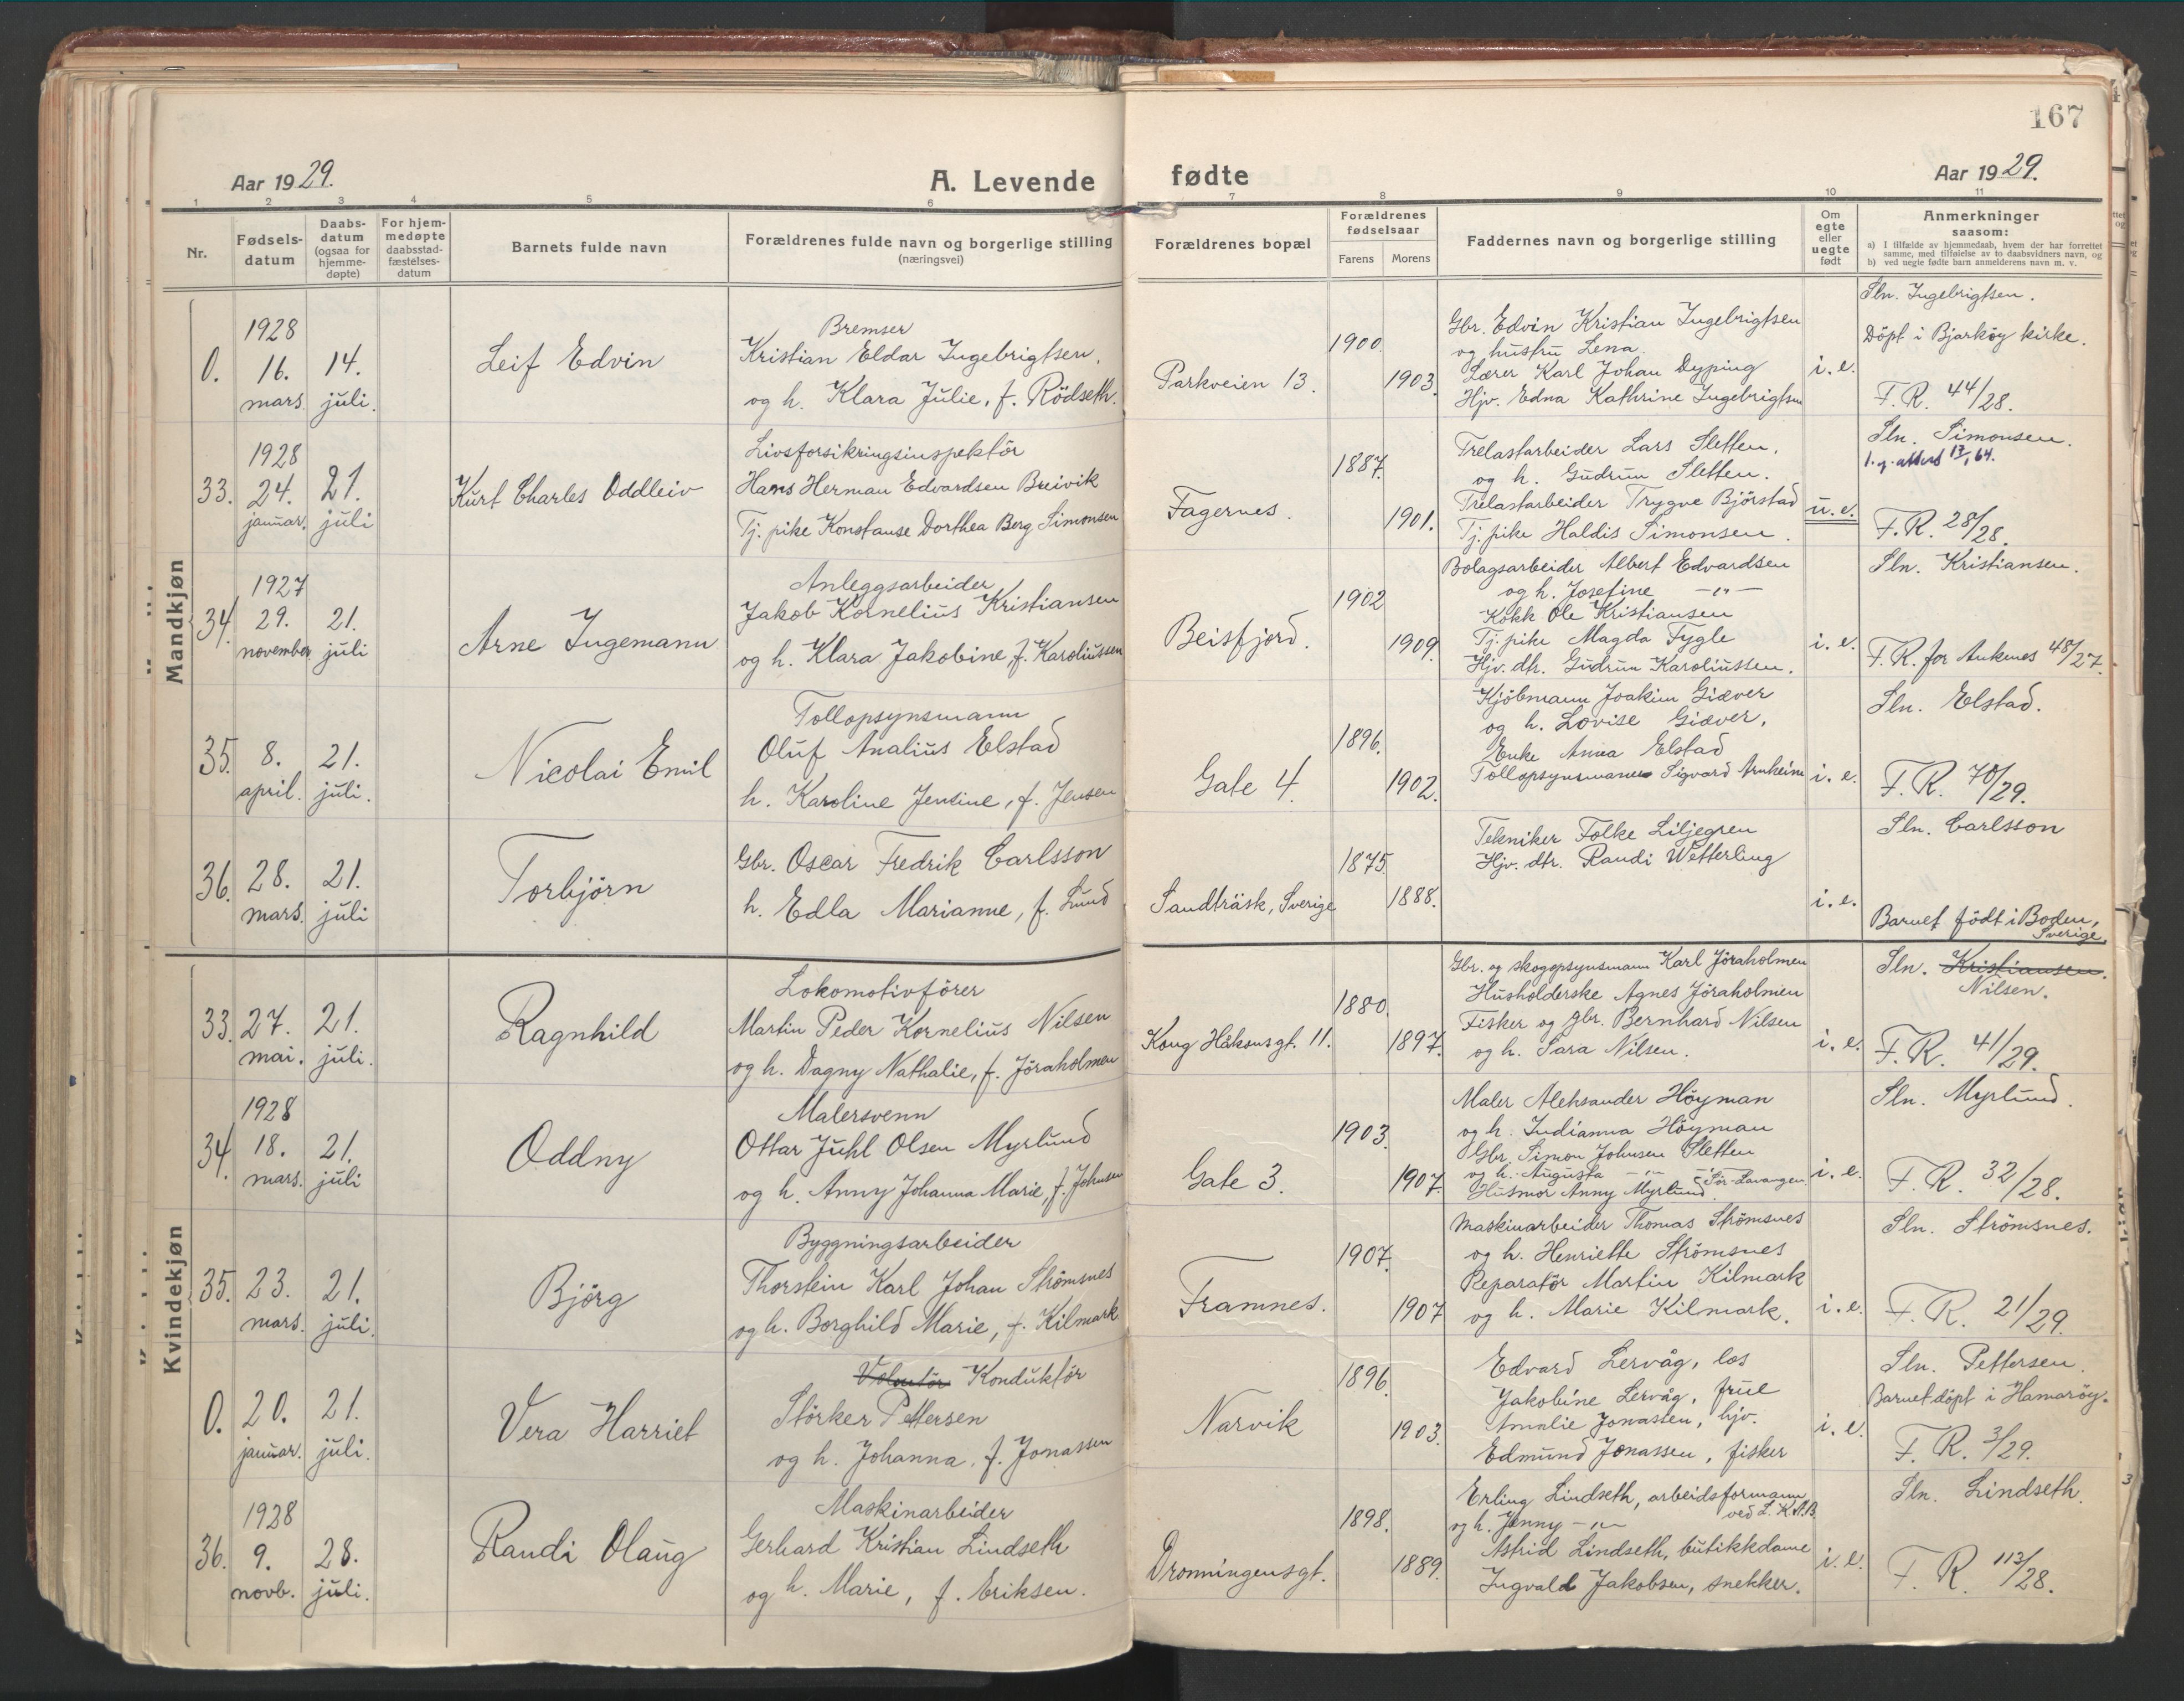 167
Aar 1929.
A. Levende fødte
Aar 1929.
1 2 3 4 5 6 7 8 9 10 11
Nr.
Fødsels-
datum
Daabs-
datum
(ogsaa for
hjemme-
døpte)
For hjem-
medøpte
daabsstad-
fæstelses-
datum
Barnets fulde navn
Forældrenes fulde navn og borgerlige stilling
(næringsvei)
Forældrenes bopæl
Forældrenes
fødselsaar
Farens
Morens
Faddernes navn og borgerlige stilling
Om
egte
eller
uegte
født
Anmerkninger
saasom:
a) I tilfælde av hjemmedaab, hvem der har forrettet
samme, med tilføielse av to daabsvidners navn, og
b) ved uegte fødte barn anmelderens navn m. v.
Mandkjøn
0.
1928
16.
mars.
14.
juli.
Leif Edvin
Bremser
Kristian Eldar Ingebrigtsen,
og h. Klara Julie, f. Rödseth.
Parkveien 13.
1900.
1903.
Gbr. Edvin Kristian Ingebrigtsen
og hustru Lena.
Lærer Karl Johan Dyping
Hjv. Edna Kathrine Ingebrigtsen
i. e.
Sln. Ingebrigtsen.
Döpt i Bjarköy kirke.
F. R. 44/28.
33.
1928
24.
januar.
21.
juli
Kurt Charles Oddleiv
Livsforsikringsinspektör
Hans Herman Edvardsen Breivik
Tj. pike Konstanse Dorthea Berg Simonsen
Fagernes.
1887.
1901.
Trelastarbeider Lars Sletten.
og h. Gudrun Sletten.
Trelastarbeider Trygve Björstad
Tj. pike Haldis Simonsen.
u. e.
Sln. Simonsen.
F. R. 28/28.
34.
1927
29.
november
21.
juli
Arne Ingemann
Anleggsarbeider
Jakob Kornelius Kristiansen
og h. Klara Jakobine, f. Karoliussen
Beisfjord.
1902
1909.
Bolagsarbeider Albert Edvardsen
og h. Josefine —"—
Kokk Ole Kristiansen
Tj. pike Magda Tygle
Hjv. dtr. Gudrun Karoliussen.
i. e.
Sln. Kristiansen.
F. R. for Ankenes 48/27.
35.
8.
april.
21.
juli.
Nicolai Emil
Tollopsynsmann
Oluf Analius Elstad
h. Karoline Jensine, f. Jensen
Gate 4.
1896.
1902.
Kjöbmann Joakim Giæver
og h. Lovise Giæver,
Enke Anna Elstad
Tollopsynsmann Sigvard Arnheim
i. e.
Sln. Elstad.
F. R. 70/29.
36.
28.
mars.
21.
juli
Torbjörn
Gbr. Oscar Fredrik Carlsson
h. Edla Marianne, f. Lund
Sandträsk, Sverige
1875
1888.
Tekniker Folke Liljegren
Hjv. dtr. Randi Wetterling
i. e.
Sln. Carlsson
Barnet födt i Boden,
Sverige.
Kvindekjøn
33.
27.
mai.
21.
juli.
Ragnhild
Lokomotivförer
Martin Peder Kornelius Nilsen
og h. Dagny Nathalie, f. Jöraholmen
Kong Håkonsgt. 11.
1880.
1897.
Gbr. og skogopsynsmann Karl Jöraholmen
Husholderske Agnes Jöraholmen
Fisker og gbr. Bernhard Nilsen
og h. Sara Nilsen.
i. e.
Sln. Kristiansen.
Nilsen.
F. R. 41/29.
34.
1928
18.
mars.
21.
juli
Oddny
Malersvenn
Ottar Juhl Olsen Myrlund
og h. Anny Johanna Marie, f. Johnsen
Gate 3.
1903.
1907.
Maler Aleksander Höyman
og h. Indianna Höyman
Gbr. Simon Johnsen Sletten
og h. Augusta —"— Sör-Lavangen
Husmor Anny Myrlund.
i. e.
Sln. Myrlund.
F. R. 32/28.
35.
23.
mars.
21.
juli.
Björg
Byggningsarbeider
Thorstein Karl Johan Strömsnes
og h. Borghild Marie, f. Kilmark
Framnes.
1907.
1907
Maskinarbeider Thomas Strömsnes
og h. Henriette Strömsnes
Reparatör Martin Kilmark
og h. Marie Kilmark.
i. e.
Sln. Strömsnes.
F. R. 21/29.
0.
20.
januar.
21.
juli.
Vera Harriet
Volontör Konduktör
Störker Pettersen
og h. Johanna, f. Jonassen
Narvik
1896.
1903.
Edvard Lervåg, los
Jakobine Lervåg, frue
Amalie Jonassen, hjv.
Edmund Jonassen, fisker
i. e.
Sln. Pettersen.
Barnet döpt i Hamaröy.
F. R. 3/29.
36.
1928
9.
novb.
28.
juli.
Randi Olaug
Maskinarbeider
Gerhard Kristian Lindseth
og h. Marie, f. Eriksen.
Dronningensgt.
1898.
1889.
Erling Lindseth, arbeidsformann
ved L.K.A.B.
og h. Jenny —"—
Astrid Lindseth, butikkdame
Ingvald Jakobsen, snekker.
i. e.
Sln. Lindseth.
F. R. 113/28.